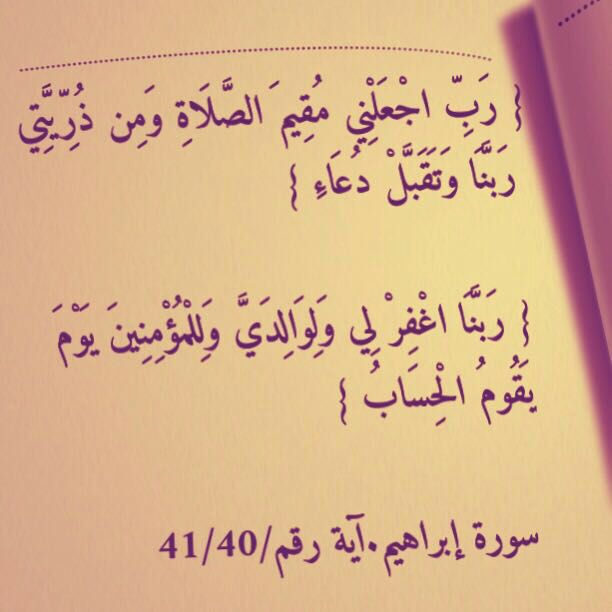 { رَبِّ اجْعَلْنِي مُقِيمَ الصَّلَاةِ وَمِن ذُرِّيَّتِي
رَبَّنَا وَتَقَبَّلْ دُعَاءِ }
{ رَبَّنَا اغْفِرْ لِي وَلِوَالِدَيَّ وَلِلْمُؤْمِنِينَ يَوْمَ
يَقُومُ الْحِسَابُ }
سورة إبراهيم.آية رقم/41/40